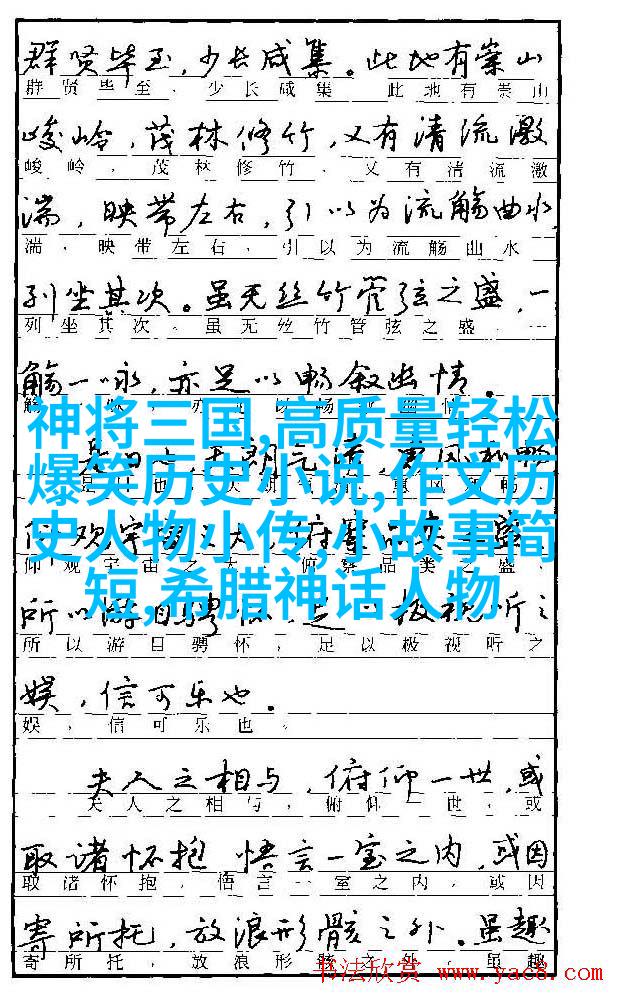 群贤毕至,少长咸集。此地有崇山
群贤毕至,少长咸集 此地有崇山
峻岭,茂林修竹,又有清流激
峻岭,茂林修竹,又有清流激
湍,映带左右,引以为流觞曲水,
湍,映带左右,引以为流觞曲水
列坐其次。虽无丝竹管弦之盛,一
列坐其次。虽无丝竹管弦之盛,一
觞一咏,亦足以畅叙幽情。
神将三国,高质量轻松
爆笑历史小说,作文历
史人物小传,小故事简
短,希腊神话人物
仰观宇宙之大,俯察品类之盛,
所以游目骋怀,足以极视听之
所以游目骋怀,足以极视听之
娱,信可乐也。
娱,信可乐也。
夫人之相与,俯仰一世,或
夫人之相与,俯仰一世,或
取诸怀抱 悟言一室之内,或因
取诸怀抱,悟言一室之内,或因
寄所托,放浪形骸之外。虽趣
寄所托,放浪形骸之外。虽趣
书法欣赏 www.yac8.com